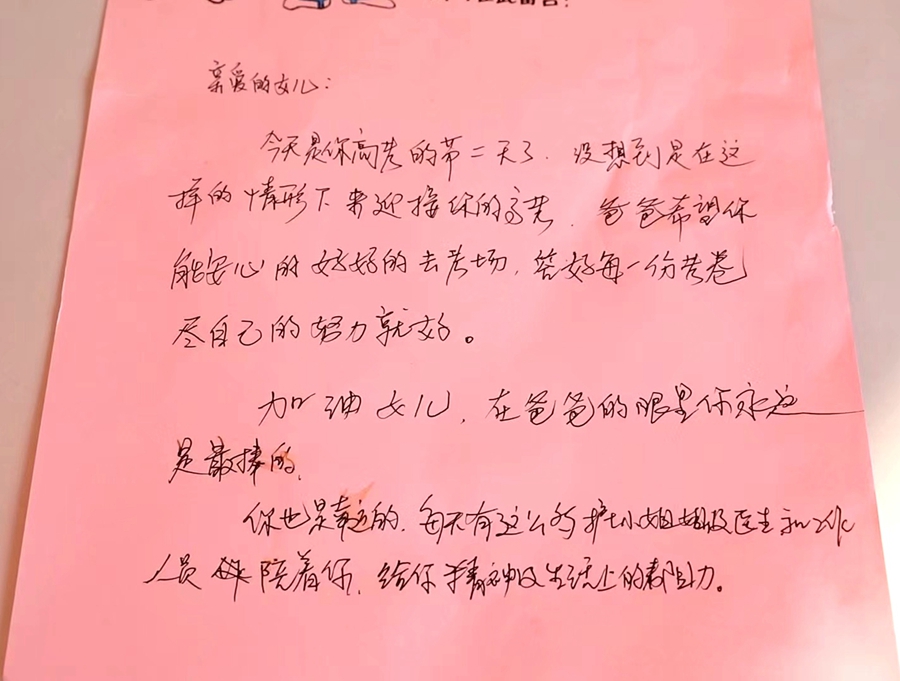 亲爱的女儿:
今天是你高考的第二天了.没想到是在这
样的情形下来迎接你的高考.爸爸希望你
能安心的好好的去考场,答好每一份考卷
尽自己的努力就好。
加油女儿,在爸爸的眼里你永远
是最棒的,
你也是幸运的.每天有这么多护士小姐姐及医生和
人员 陪着你,给你精神及生活上的 助力。